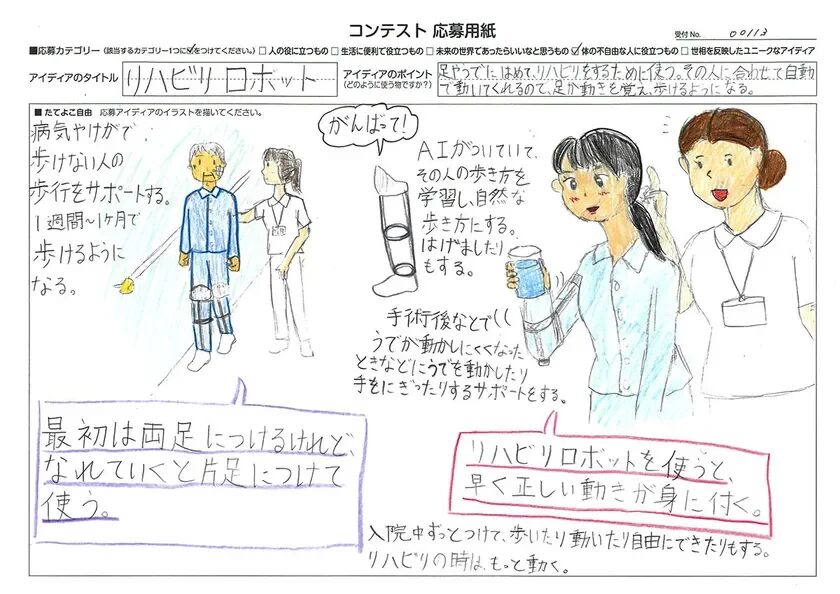 コンテスト 応募用紙
受付No. 00113
■応募カテゴリー（該当するカテゴリー1つに✓をつけてください。）□ 人の役に立つもの □ 生活に便利で役立つもの □ 未来の世界であったらいいなと思うもの ☑ 体の不自由な人に役立つもの □ 世相を反映したユニークなアイディア
アイディアのタイトル
リハビリロボット
アイディアのポイント
（どのように使う物ですか？）
足やうでにはめて、リハビリをするために使う。その人に合わせて自動
で動いてくれるので、足が動きを覚え、歩けるようになる。
■ たてよこ自由 応募アイディアのイラストを描いてください。
病気やけがで
歩けない人の
歩行をサポートする。
1週間〜1ヶ月で
歩けるように
なる。
がんばって!
AIがついていて、
その人の歩き方を
学習し、自然な
歩き方にする。
はげましたり
もする。
手術後などで
うでが動かしにくくなった
ときなどにうでを動かしたり
手をにぎったりするサポートをする。
最初は両足につけるけれど、
なれていくと片足につけて
使う。
リハビリロボットを使うと、
早く正しい動きが身に付く。
入院中ずっとつけて、歩いたり動いたり自由にできたりもする。
リハビリの時は、もっと動く。